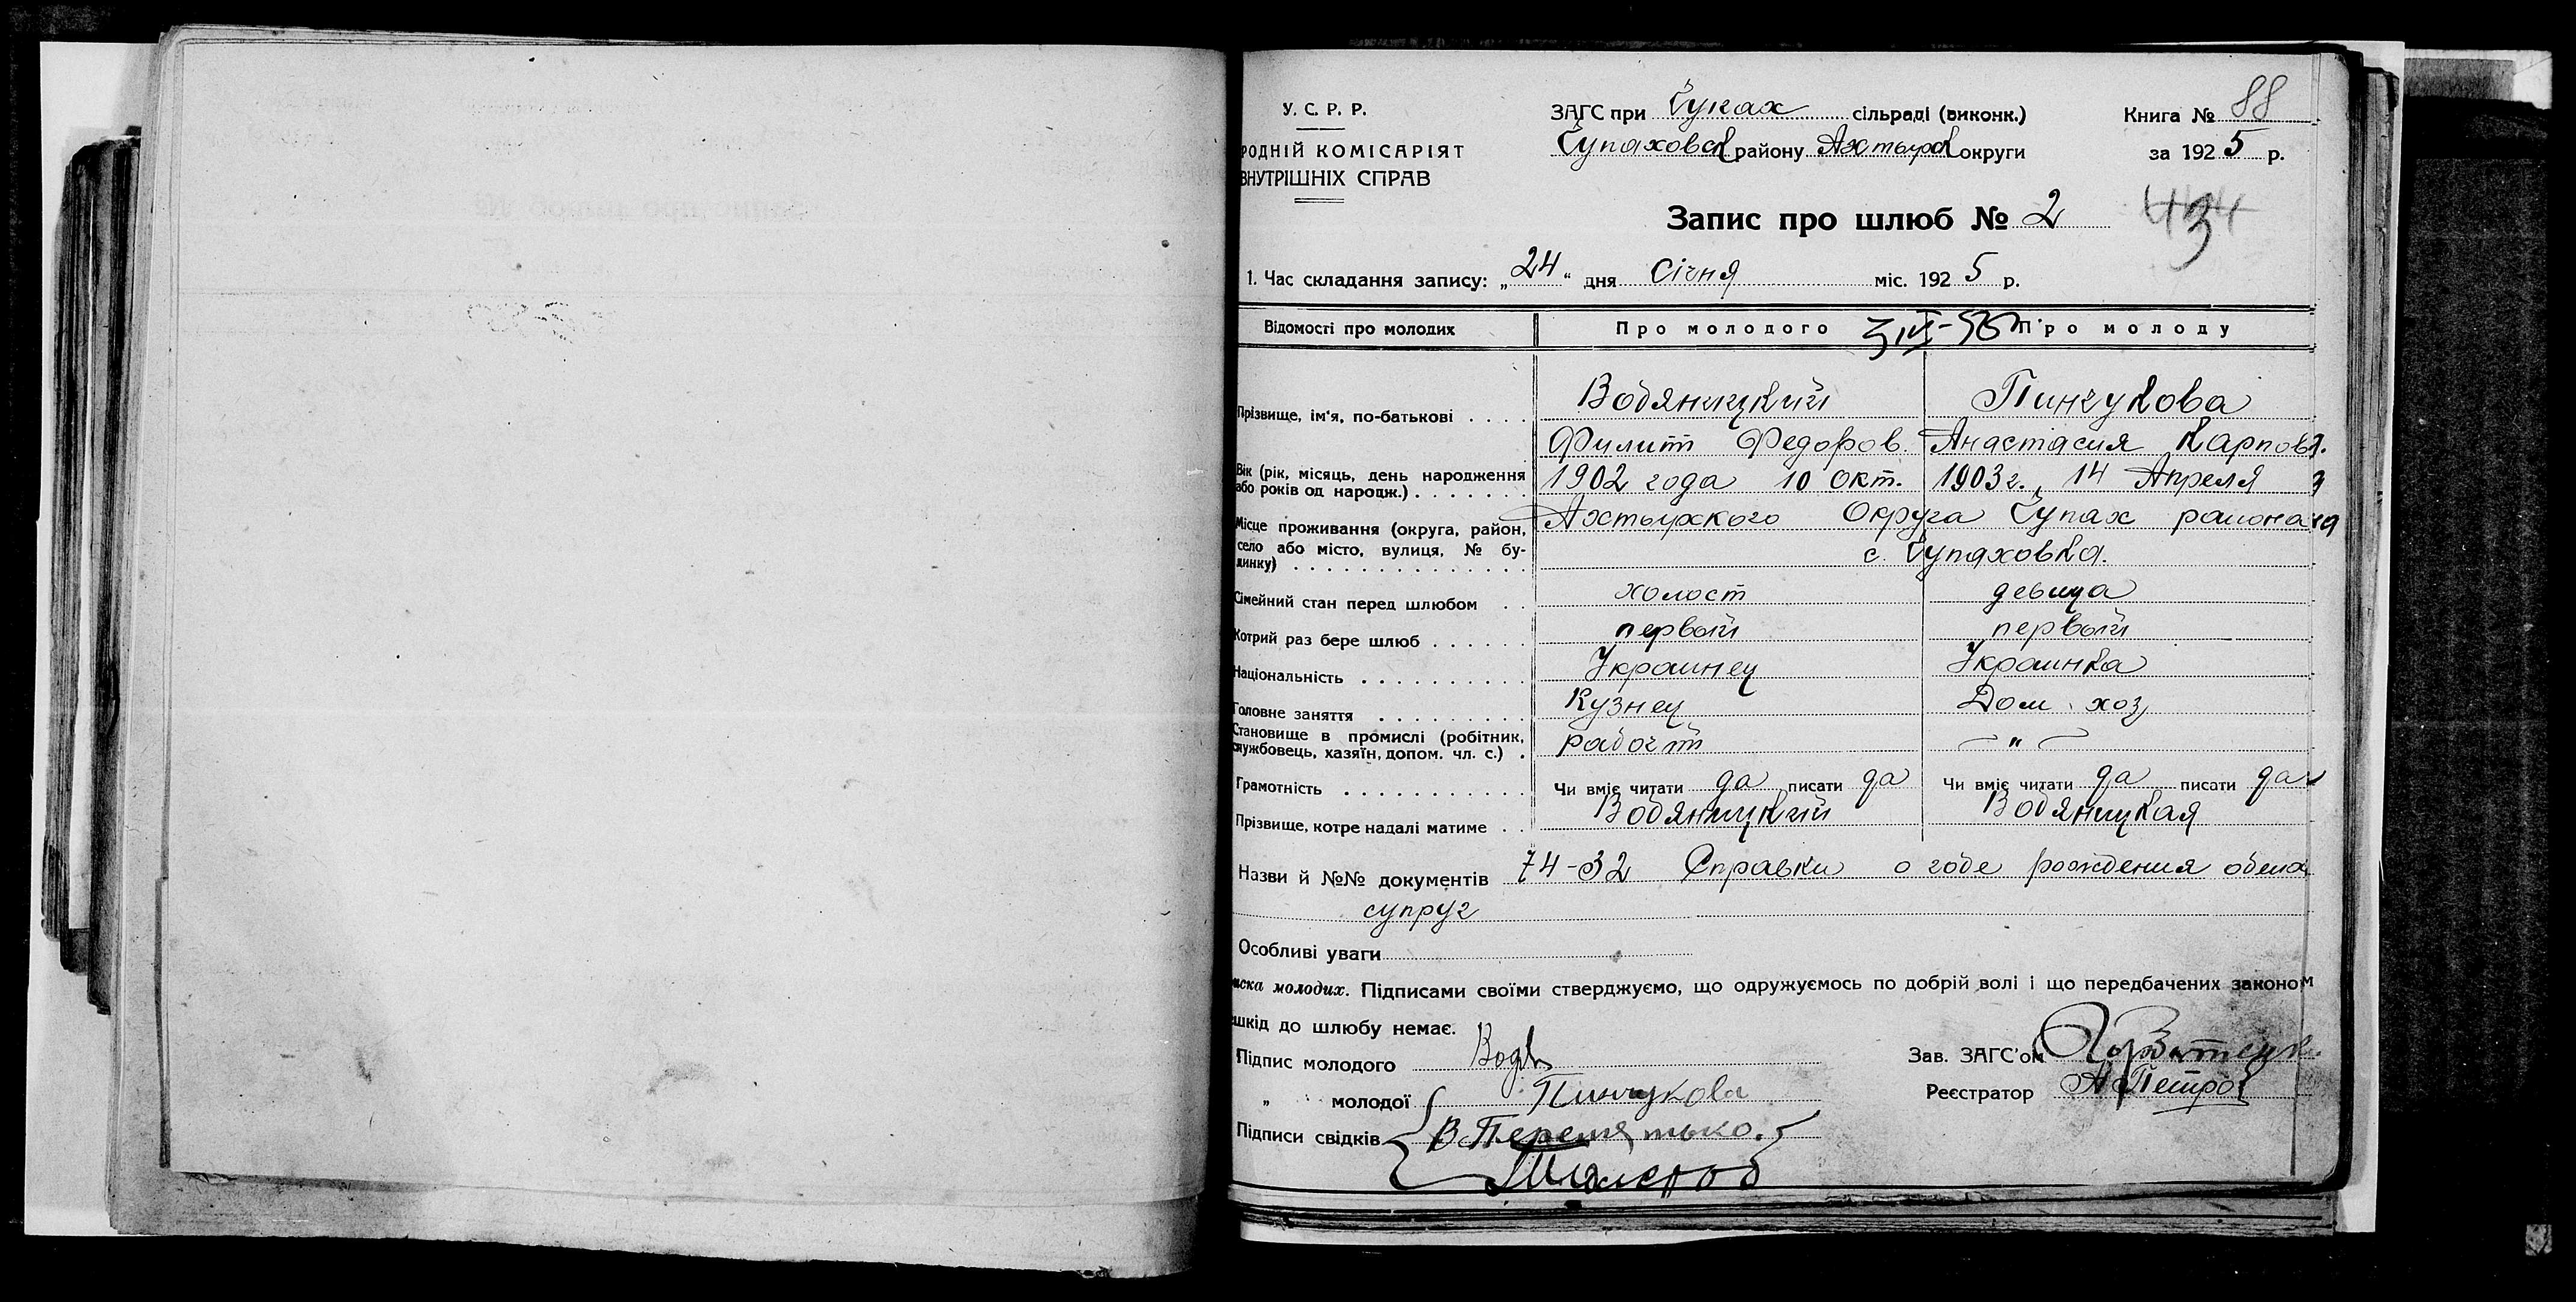 У. С. Р. Р.
РОДНІЙ КОМІСАРІЯТ
ВНУТРІШНІХ СПРАВ
ЗАГС при Чупах сільраді (виконк.)
Чупаховск району Ахтырск округи
Книга № 88
за 1925 р.
Запис про шлюб № 2
1. Час складання запису: „24“ дня Січня міс. 1925 р.
Відомості про молодих Про молодого Про молоду
Прізвище, ім'я, по-батькові . . . . Водяницкий Пинчукова
Филипп Федоров. Анастасия Карповн.
Вік (рік, місяць, день народження
або років од народж.) . . . . . . . 1902 года 10 Окт. 1903 г. 14 Апреля
Місце проживання (округа, район, Ахтырского Округа Чупах района
село або місто, вулиця, № бу-
динку) . . . . . . . . . . . . . . с. Чупаховка.
Сімейний стан перед шлюбом . . холост девица
Котрий раз бере шлюб . . . . . . первый первый
Національність . . . . . . . . . . Украинец Украинка
Головне заняття . . . . . . . . . Кузнец Дом. хоз.
Становище в промислі (робітник,
службовець, хазяїн, допом. чл. с.) . рабоч "
Грамотність . . . . . . . . . . . Чи вміє читати да писати да Чи вміє читати да писати да
Прізвище, котре надалі матиме . . Водяницкий Водяницкая
Назви й №№ документів 74-32 Справки о годе рождения обеих
супруг
Особливі уваги
иска молодих. Підписами своїми стверджуємо, що одружуємось по добрій волі і що передбачених законом
шкід до шлюбу немає.
Підпис молодого Водя
Зав. ЗАГС'ом
„ молодої Пинчукова
Реєстратор А Петров
Підписи свідків В Перемятько.